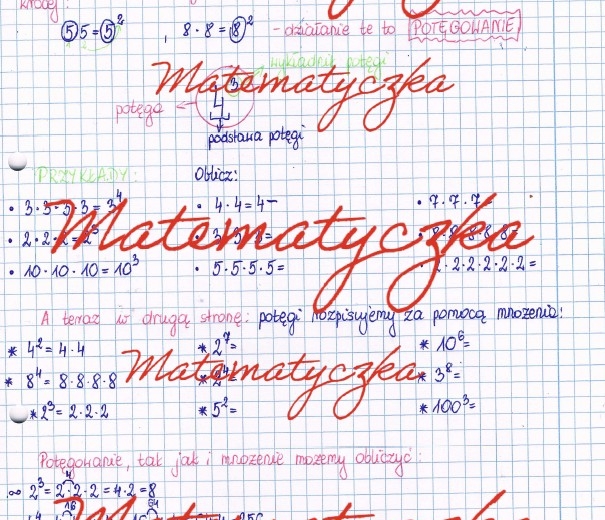 krócej:
5·5 = 5² , 8 · 8 = 8² - działanie te to POTĘGOWANIE
wykładnik potęgi
Matematyczka
potęga ← 4³
podstawa potęgi
PRZYKŁADY: Oblicz:
• 3·3·3·3 = 3⁴ • 4·4 = 4 • 7·7·7
Matematyczka
• 2·2·2 = 2³
• 10·10·10 = 10³ • 5·5·5·5= 2·2·2·2·2·2=
A teraz w drugą stronę: potęgi rozpisujemy za pomocą mnożenia!
* 4² = 4·4 * 2⁷= * 10⁶=
Matematyczka
* 8⁴ = 8·8·8·8 * 3⁸=
* 2³ = 2·2·2 * 5²= * 100³=
Potęgowanie, tak jak i mnożenie możemy obliczyć:
2³ = 2·2·2 = 4·2 = 8